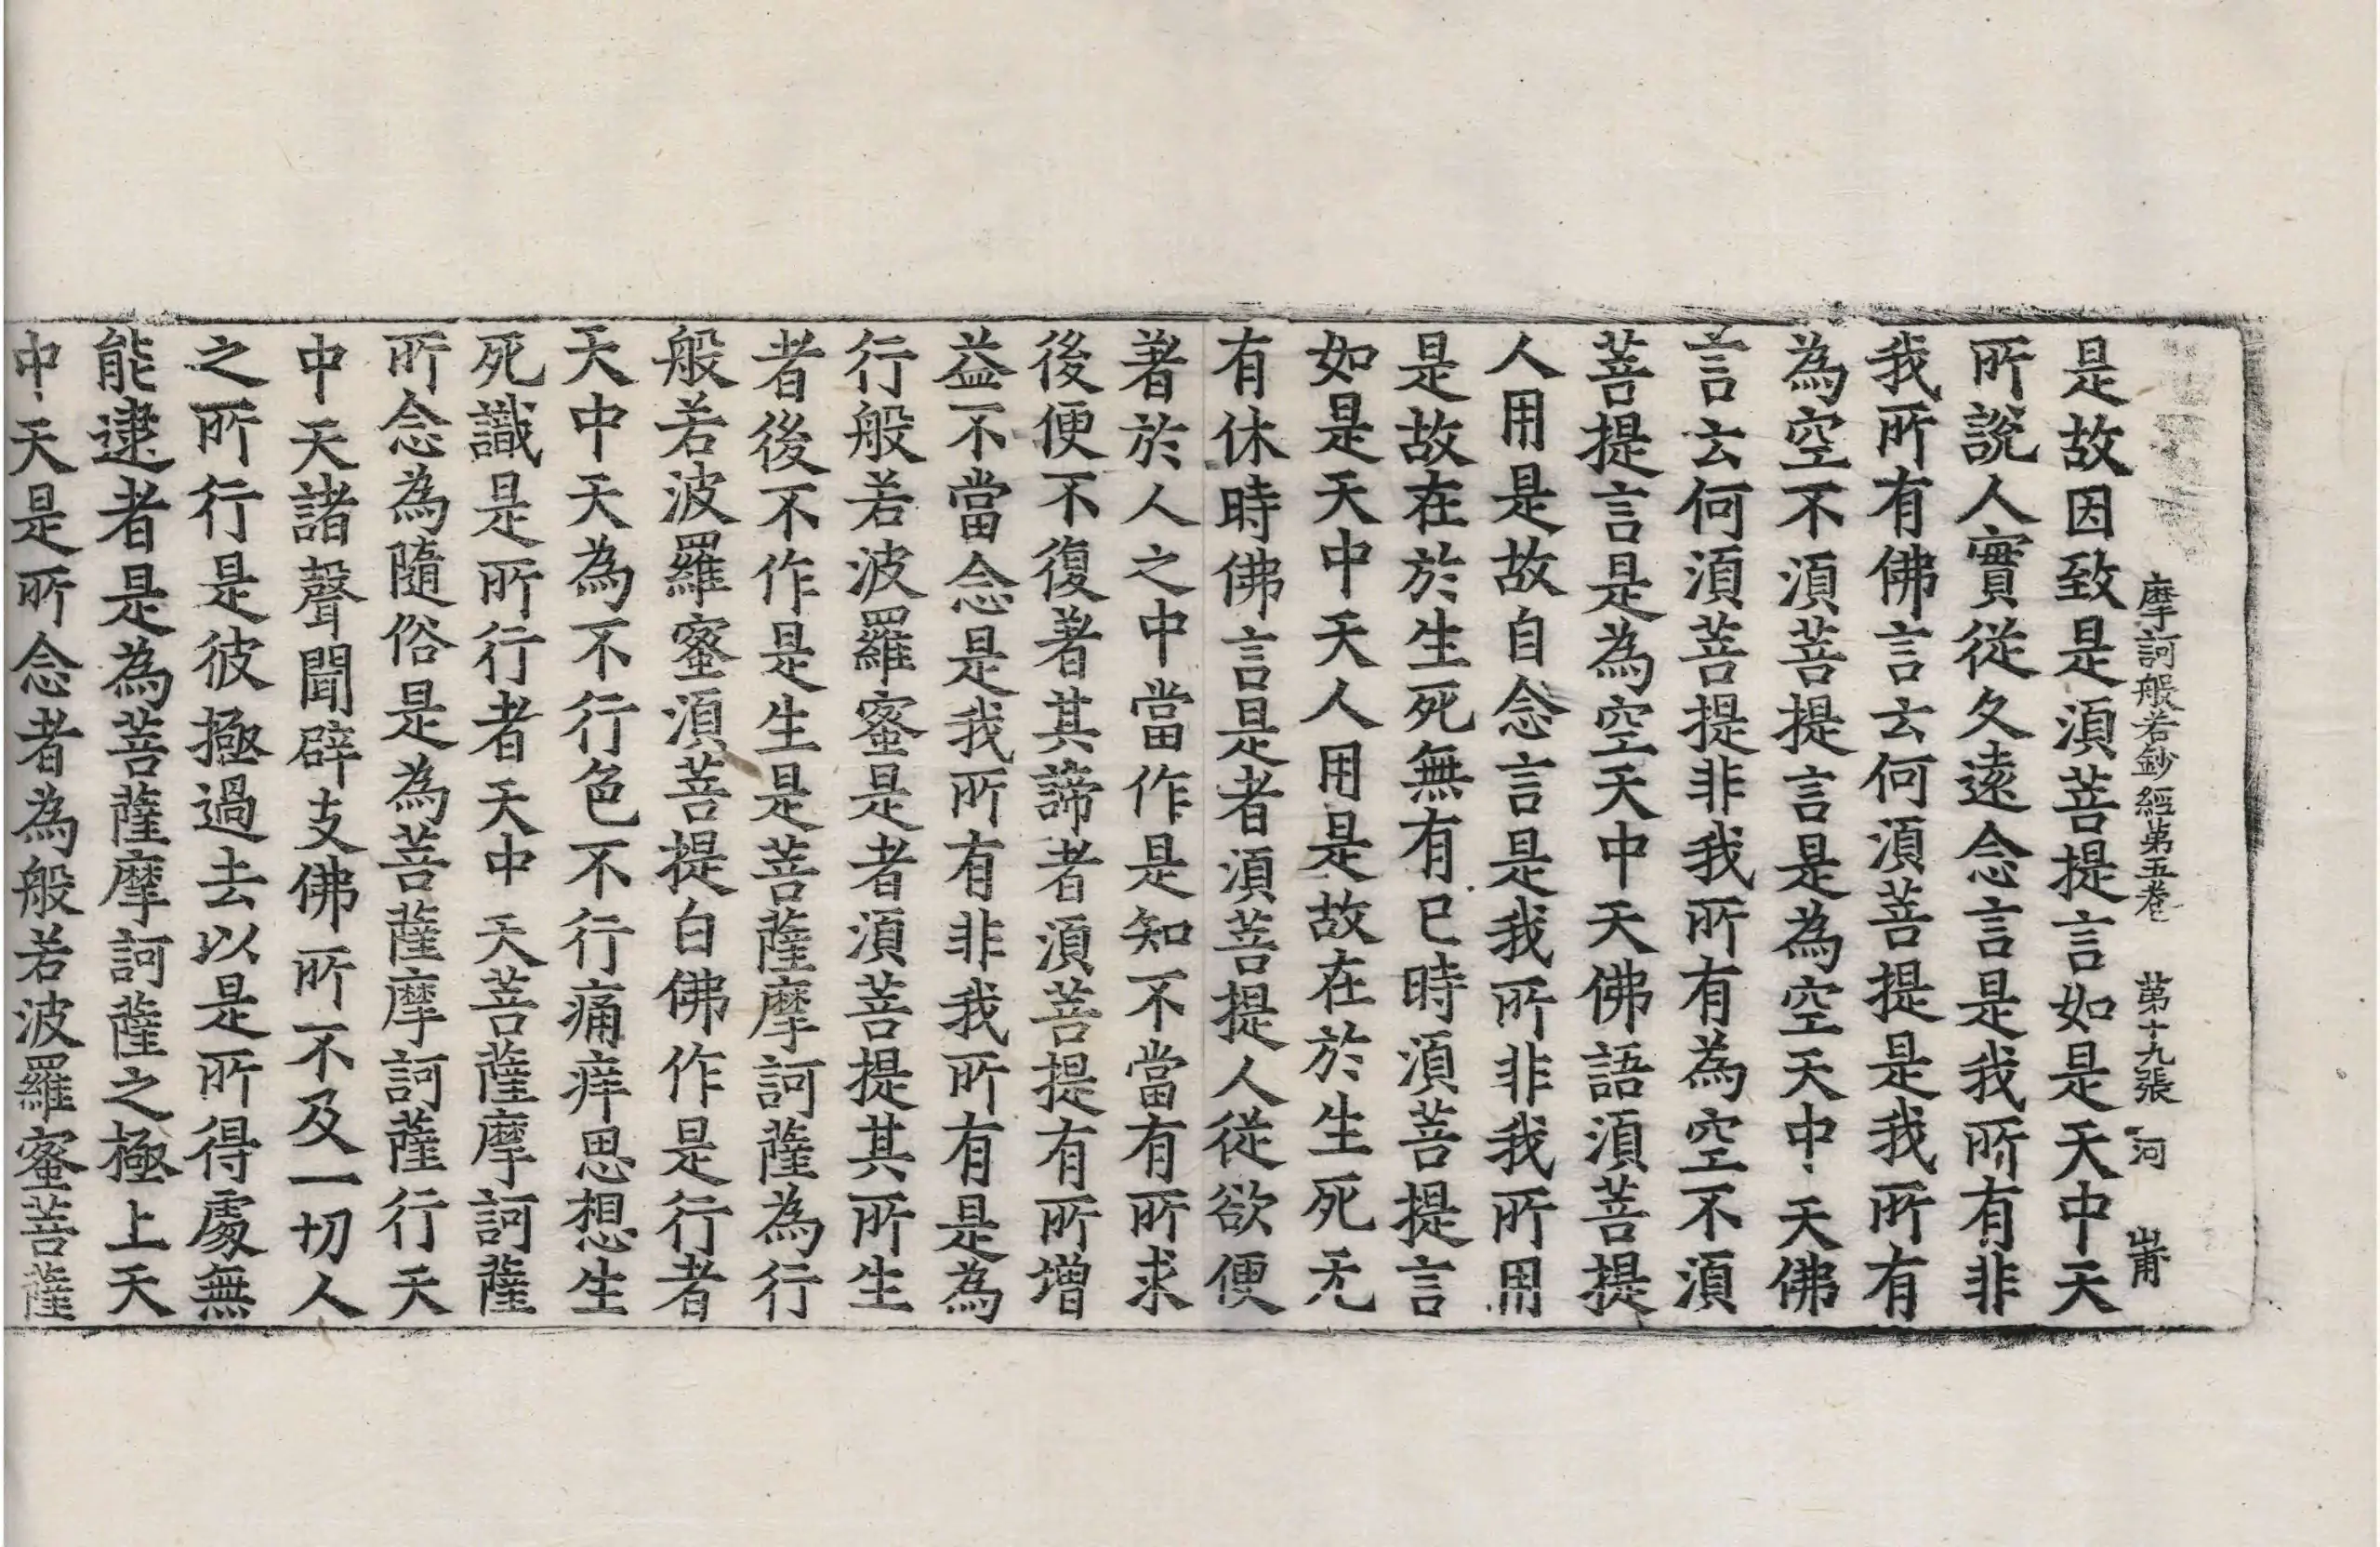 摩訶般若鈔經第五卷　第十九張　河　甫
是故因致是須菩提言如是天中天
所說人實從久遠念言是我所有非
我所有佛言云何須菩提是我所有
為空不須菩提言是為空天中天佛
言云何須菩提非我所有為空不須
菩提言是為空天中天佛語須菩提
人用是故自念言是我所非我所用
是故在於生死無有已時須菩提言
如是天中天人用是故在於生死无
有休時佛言是者須菩提人從欲便
著於人之中當作是知不當有所求
後便不復著其諦者須菩提有所增
益不當念是我所有非我所有是為
行般若波羅蜜是者須菩提其所生
者後不作是生是菩薩摩訶薩為行
般若波羅蜜須菩提白佛作是行者
天中天為不行色不行痛痒思想生
死識是所行者天中天菩薩摩訶薩
所念為隨俗是為菩薩摩訶薩行天
中天諸聲聞辟支佛所不及一切人
之所行是彼極過去以是所得處無
能逮者是為菩薩摩訶薩之極上天
中天是所念者為般若波羅蜜菩薩